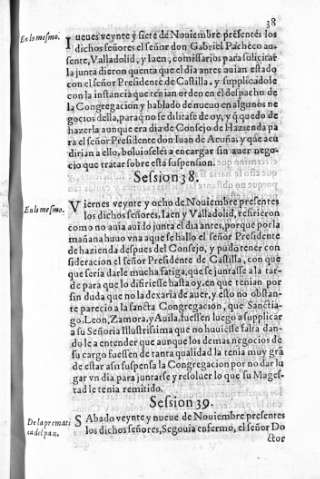 38
En lo mesmo.
Iueues veynte y siete de Nouiembre presentes los
dichos señores el señor don Gabriel Pacheco au-
sente, Valladolid, y Iaen, comissarios para solicitar
la junta dieron quenta que el dia antes auian estado
con el señor Presidente de Castilla, y supplicadole
con la instancia que tenian orden en el despacho de
la Congregacion y hablado de nueuo en algunos ne
gocios della, para que no se dilatase de oy, y q̃ quedo de
hazerla aunque era dia de Consejo de Hazienda pa
ra el señor Presidente don Iuan de Acuña, y que acu
dirian a ello, boluioseles a encargar sin auer nego-
cio que tratar sobre esta suspension.
Session 38.
En lo mesmo.
Viernes veynte y ocho de Nouiembre presentes
los dichos señores, Iaen y Valladolid, refirieron
como no auia auido junta el dia antes, porque por la
mañana huuo vna a que se hallo el señor Presidente
de hazienda despues del Consejo, y pudo tener con
sideracion el señor Presidente de Castilla, con que
que seria darle mucha fatiga, que se juntasse a la tar-
de para que lo difiriesse hasta oy, en que tenian por
sin duda que no la dexaria de auer, y esto no obstan-
te parecio a la sancta Congregacion, que Sanctia-
go, Leon, Zamora, y Auila fuessen luego a supplicar
a su Señoria Illustrissima que no huuiesse falta dan-
dole a entender que aunque los demas negocios de
su cargo fuessen de tanta qualidad la tenia muy grã
de estar assi suspensa la Congregacion por no dar lu
gar vn dia para juntarse y resoluer lo que su Mages-
tad le tenia remitido.
Session 39.
De la premati
ca del pan.
Sabado veynte y nueue de Nouiembre presentes
los dichos señores, Segouia enfermo, el señor Do
ctor